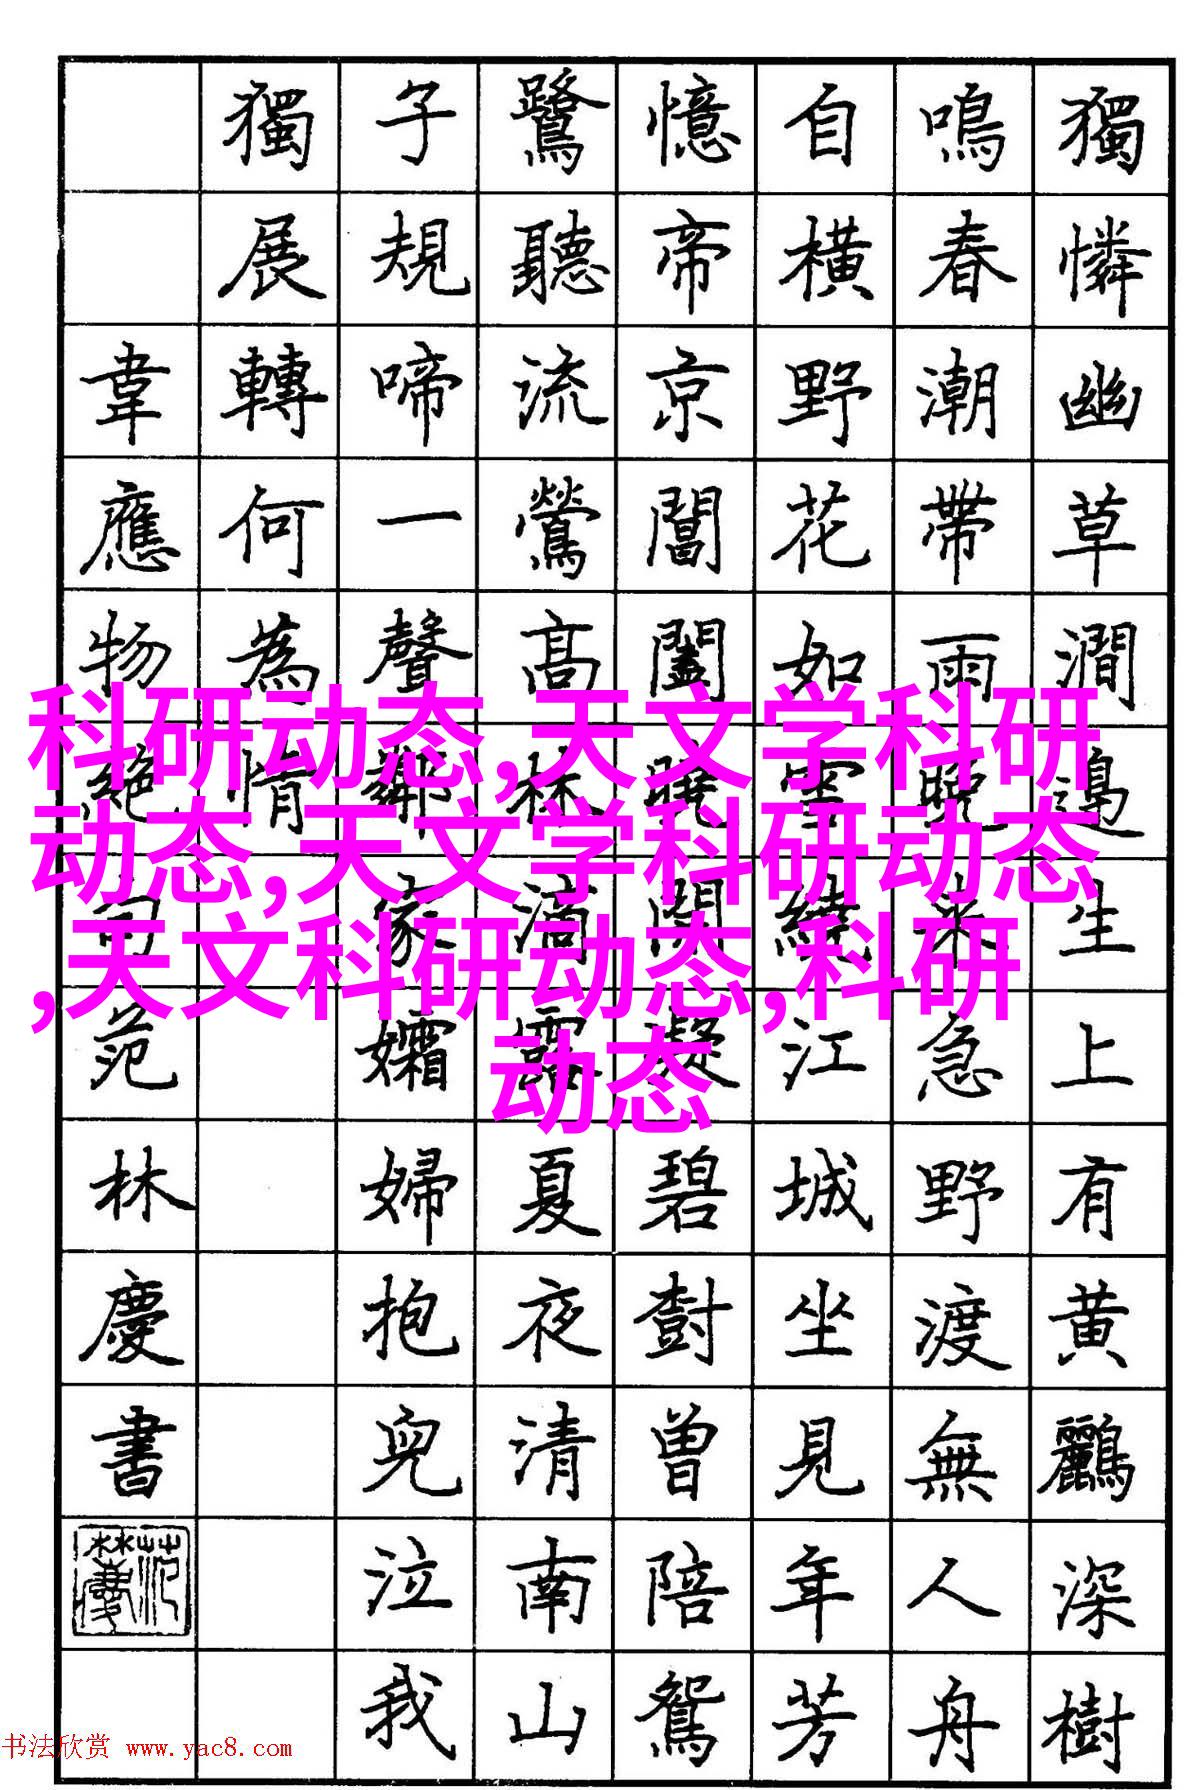 獨憐幽草澗邊生上有黄鸝深樹
鳴春潮帶雨晚来急野渡無人舟
自横野花如雪繞江城坐見年芳
憶帝京閶闔曉開凝碧樹曾陪鴛
鷺聽流鶯高林滴露夏夜清南山
子規啼一聲鄰家孀婦抱兒泣我
獨展轉何為情
韋應物絶句范林慶書
科研动态,天文学科研
动态,天文学科研动态
,天文科研动态,科研
动态
书法欣赏 www.yac8.com